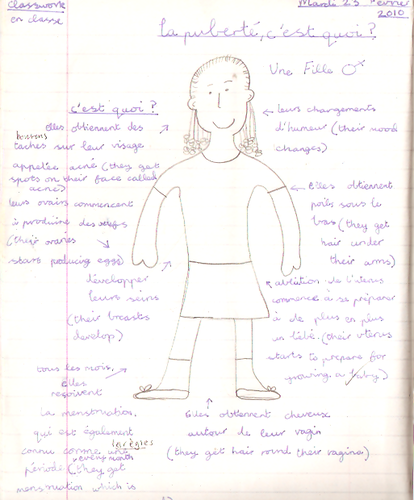 Classwork
en classe
Mardi 23 février
2010
La puberté, c'est quoi?
Une Fille
c'est quoi?
elles obtiennent des
boutons
taches sur leur visage
appelée acné (they get
spots on their face called
acné)
leurs ovairs commencent
à produire des œufs
(their ovaries
start producing eggs)
développer
leurs seins
(their breasts
develop)
tous les mois,
elles
reçoivent
la menstruation,
qui est également
connu comme une
la règles
période (they get
every month
menstruation which is
leurs changements
d'humeur (their mood
changes)
Elles obtiennent
poils sous le
bras (they get
hair under
their arms)
de l'uterus
commence à se préparer
à de plus en plus
un bébé. (their uterus
starts to prepare for
growing a baby)
Elles obtiennent cheveux
autour de leur vagin
(they get hair round their vagina)